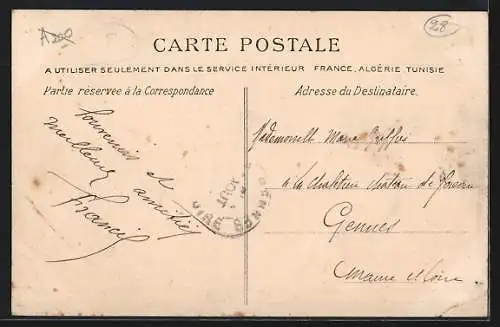 A209
28
CARTE POSTALE
A UTILISER SEULEMENT DANS LE SERVICE INTÉRIEUR FRANCE, ALGÉRIE, TUNISIE
Partie réservée à la Correspondance
Adresse du Destinataire.
Souvenirs et amitiés
meilleurs
Francis
Mademoiselle Marie
à la Chapelle
Gennes
Maine et Loire
AOUT